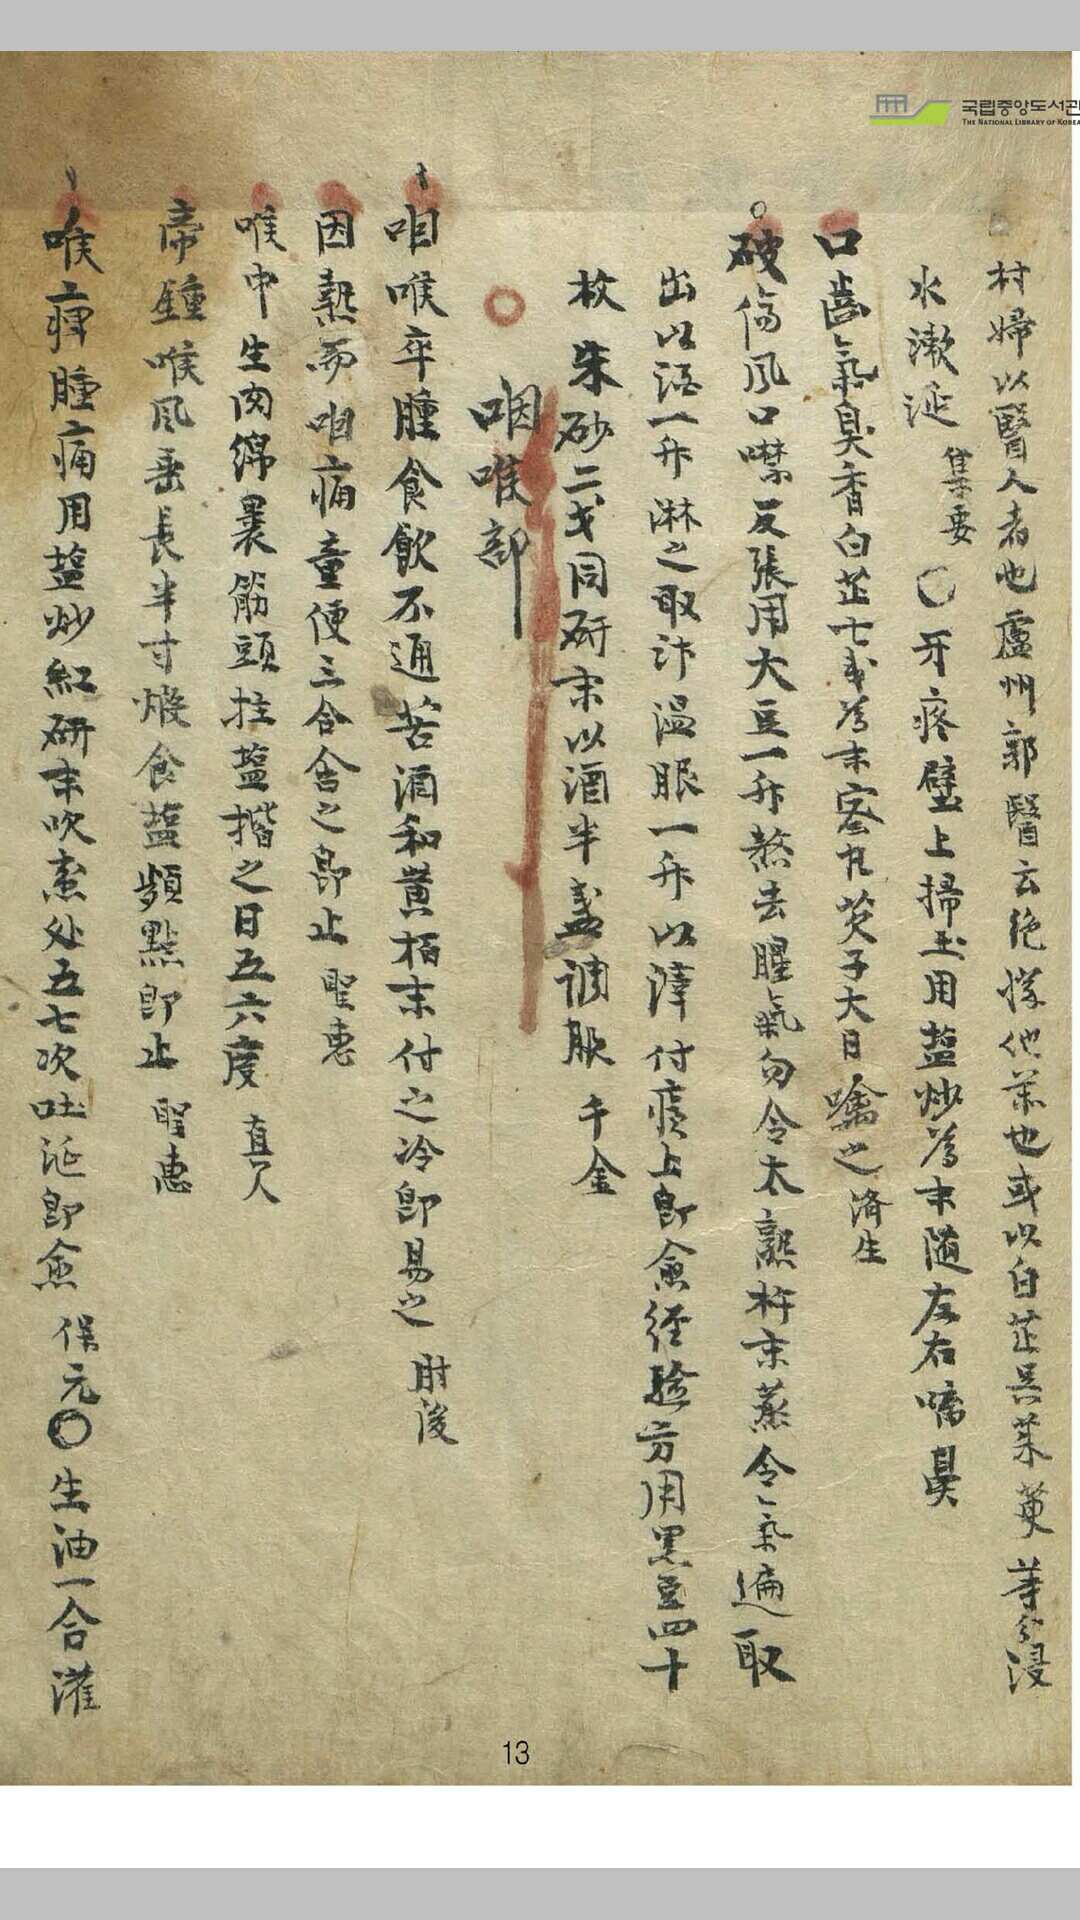 국립중앙도서관
THE NATIONAL LIBRARY OF KOREA
村婦以醫人者也盧州郭醫云絶勝他藥也或以白芷吳茱萸等分浸
水漱涎 集要 ○牙疼壁上掃土用盐炒為末随左右㗜鼻
口齒氣臭香白芷七戔為末宻丸芡子大日噙之 済生
破傷風口噤反張用大豆一升熬去腥氣勿令太熟杵末蒸令氣遍取
出以酒一升淋之取汁温服一升以滓付瘡上即愈経驗方用黒豆四十
枚朱砂二戔同研末以酒半盞調服 千金
○
咽喉部
咽喉卒腫食飲不通苦酒和黄栢末付之冷即易之 肘後
因熱而咽痛童便三合含之即止 聖惠
喉中生肉綿裹筯頭拄盐揩之日五六度 直人
帝鍾喉风垂長半寸煅食盐頻點即止 聖惠
喉痺腫痛用盐炒紅研末吹患处五七次吐涎即愈 保元○生油一合灌
13